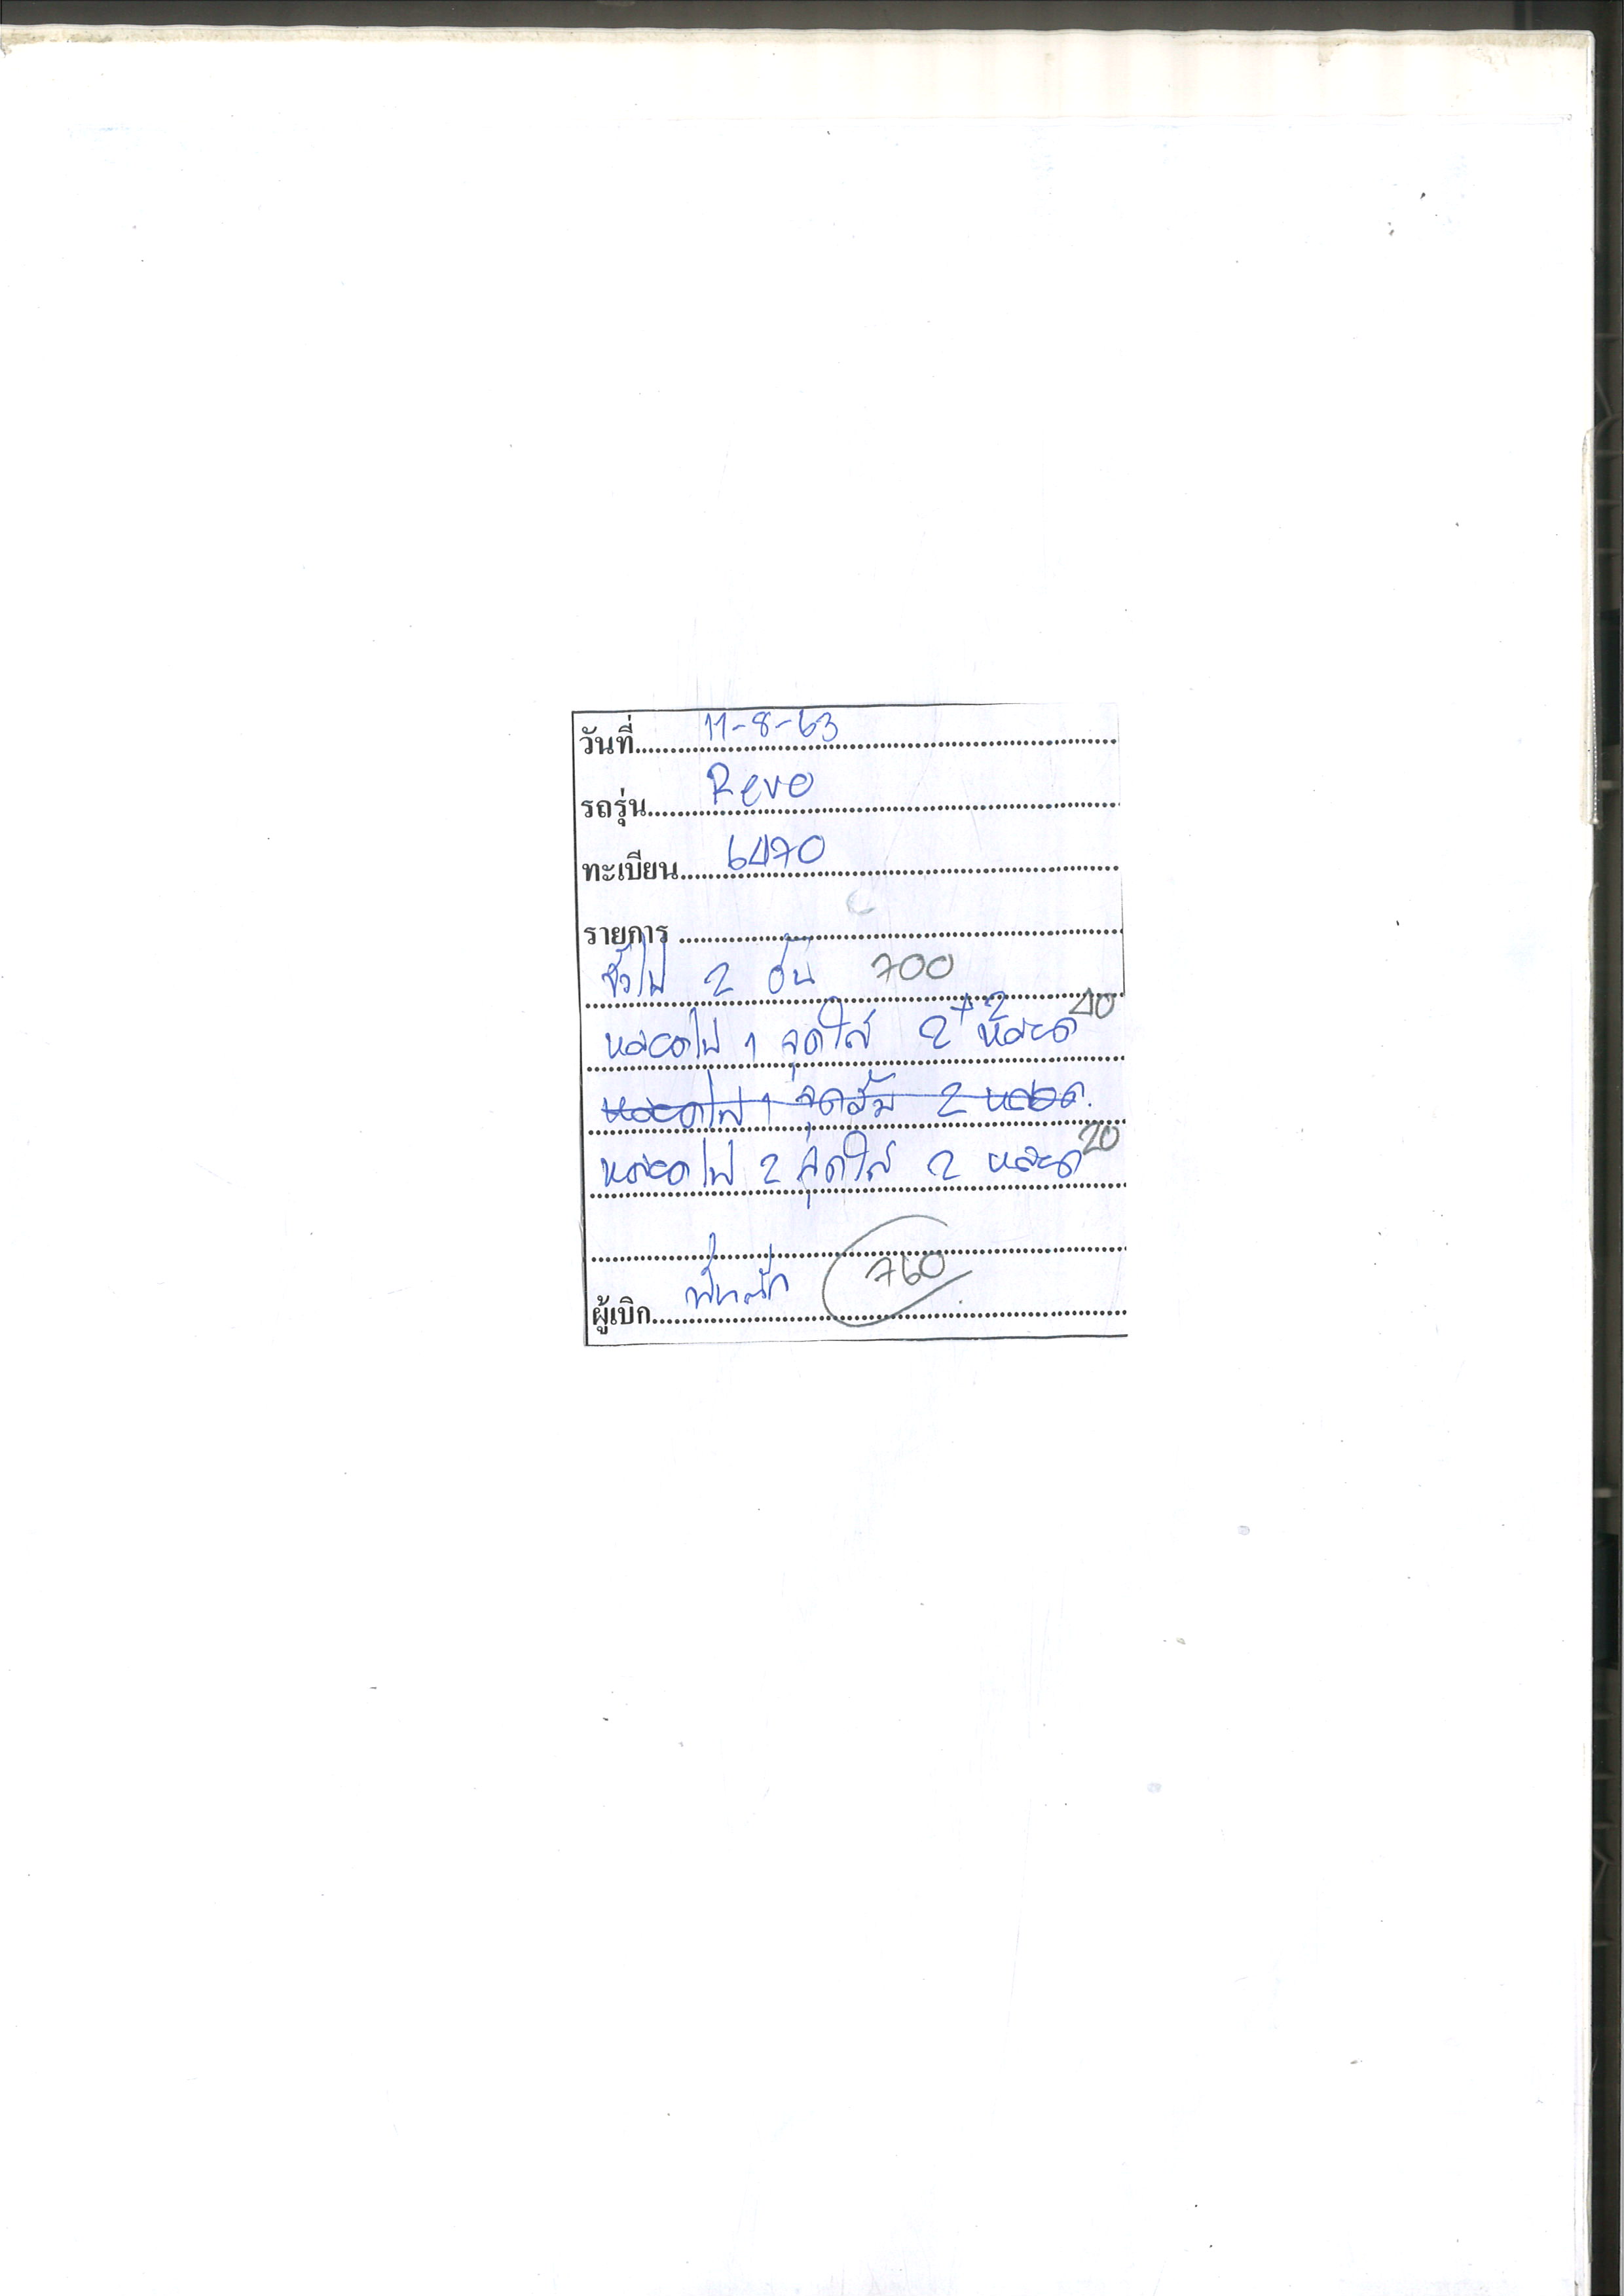 วันที่ 11-8-63
รถรุ่น Revo
ทะเบียน 6470
รายการ
ขั้วไฟ 2 อัน 700
หลอดไฟ 1 จุดใส 2+2 หลอด 40
หลอดไฟ 1 จุดส้ม 2 หลอด.
หลอดไฟ 2 จุดใส 2 หลอด 20
760
ผู้เบิก